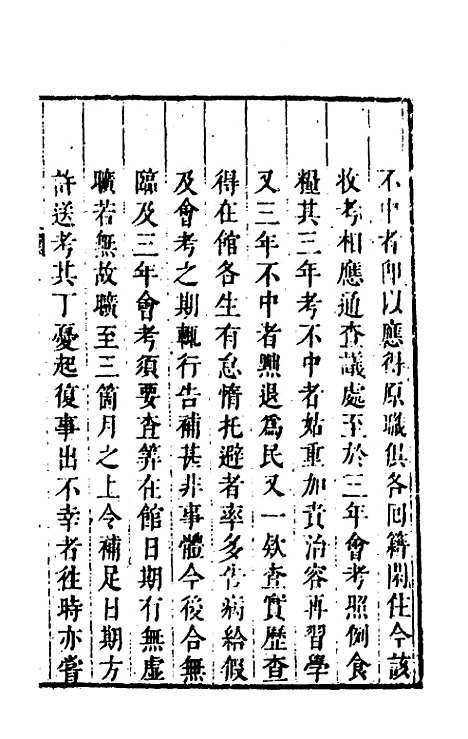 不中者卽以應得原職俱各囘籍閑住今該
收考相應通查議處至於三年會考照例食
糧其三年考不中者姑重加責治容再習學
又三年不中者黜退爲民又一欵查實歷查
得在館各生有怠惰托避者率多告病給假
及會考之期輒行告補甚非事體今後合無
臨及三年會考須要查筭在館日期有無虛
曠若無故曠至三箇月之上令補足日期方
許送考其丁憂起復事出不幸者徃時亦嘗